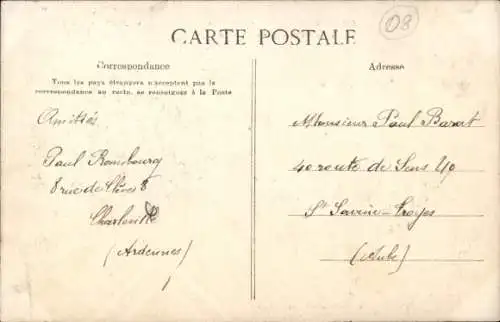 08
CARTE POSTALE
Correspondance
Tous les pays étrangers n'acceptent pas la
correspondance au recto, se renseigner à la Poste
Amitiés
Paul
8 rue de Clèves 8
Charleville
(Ardennes)
Adresse
Monsieur Paul Barat
40 route de Sens 40
St Savine-Troyes
(Aube)